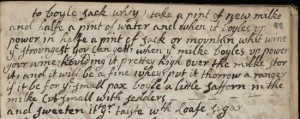 to boyle sack whey take a pint of new milke
and halfe a pint of water and when it boyles up
power in halfe a pint of sack or mountin what wine
yͤ strongest for changeth when yͤ milke boyles up power
your wine holding it pretty high over the milke stor
it and it will be a fine whey put it thorrow a ranger
if it be for yͤ small pox boyle a little safforn in the
milke but small with
and sweaten it to yͬ taiste wth loafe sugar